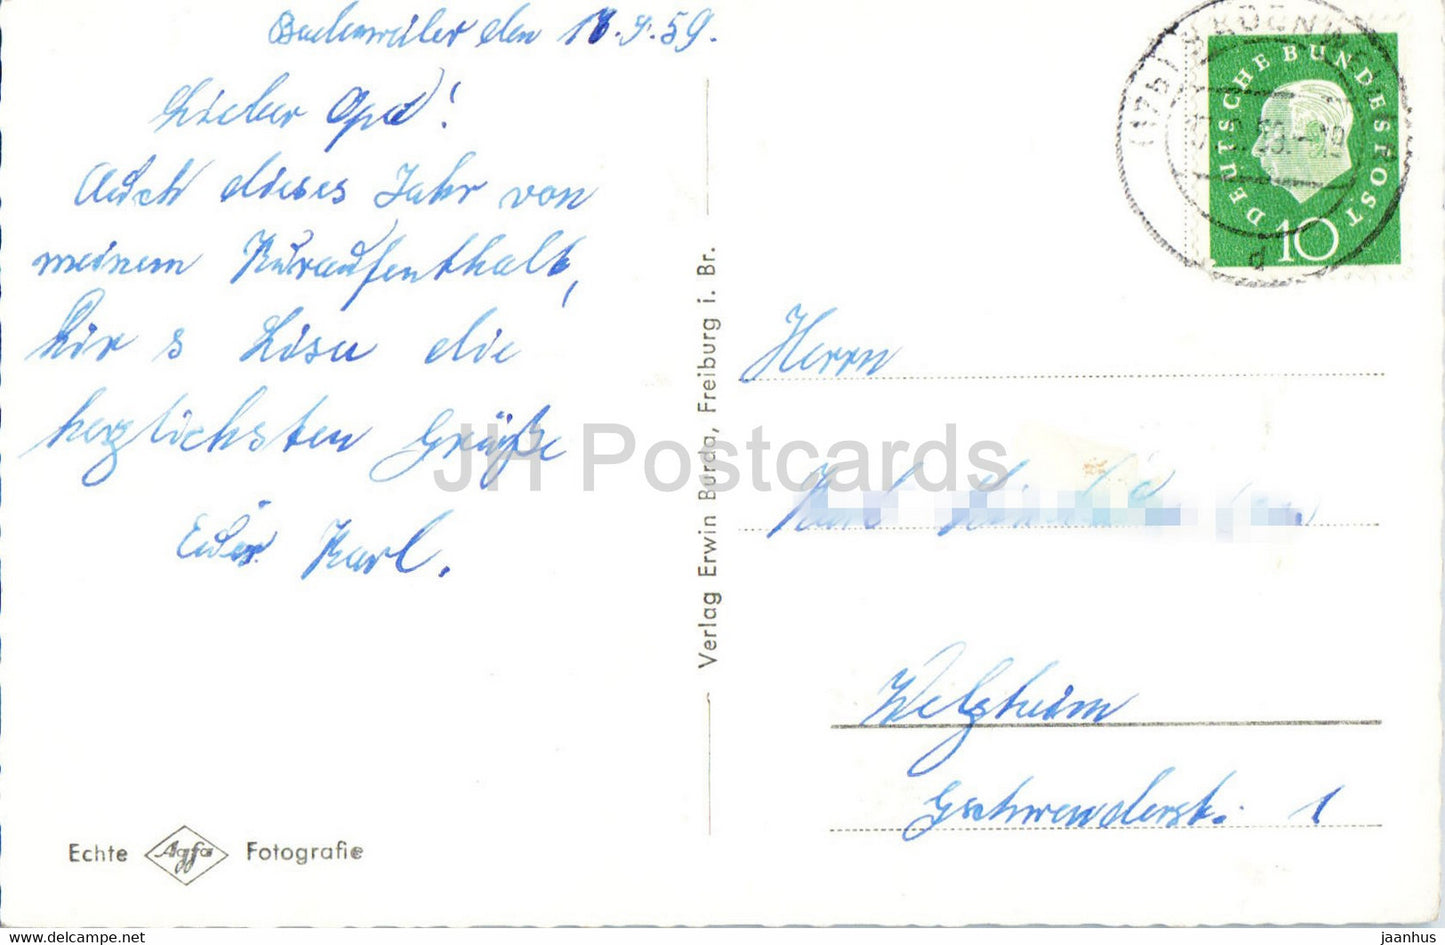 Badenweiler den 18.9.59.
Lieber Opa!
Auch dieses Jahr von
meinem Kuraufenthalt,
Dir s Lisu die
herzlichsten Grüße
Euer Karl.
Echte Agfa Fotografie
Verlag Erwin Burda, Freiburg i. Br.
DEUTSCHE BUNDESPOST
10
d
Herrn
Karl
Welzheim
Gschwenderstr. 1
JH Postcards
www.delcampe.net
jaanhus